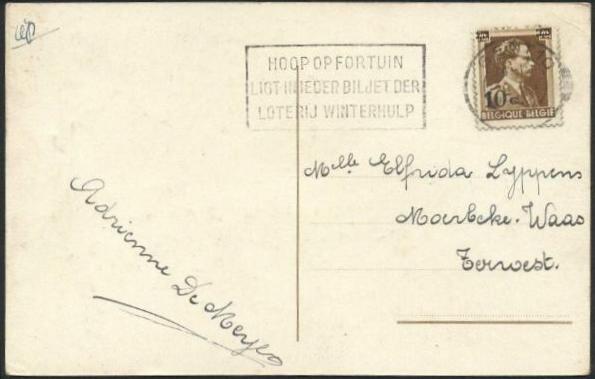 HOOP OP FORTUIN
LIGT IN IEDER BILJET DER
LOTERIJ WINTERHULP
10c
BELGIQUE BELGIË
Melle Elfrida Lyppens
Moerbeke-Waas
Terwest.
Adrienne De Meyer